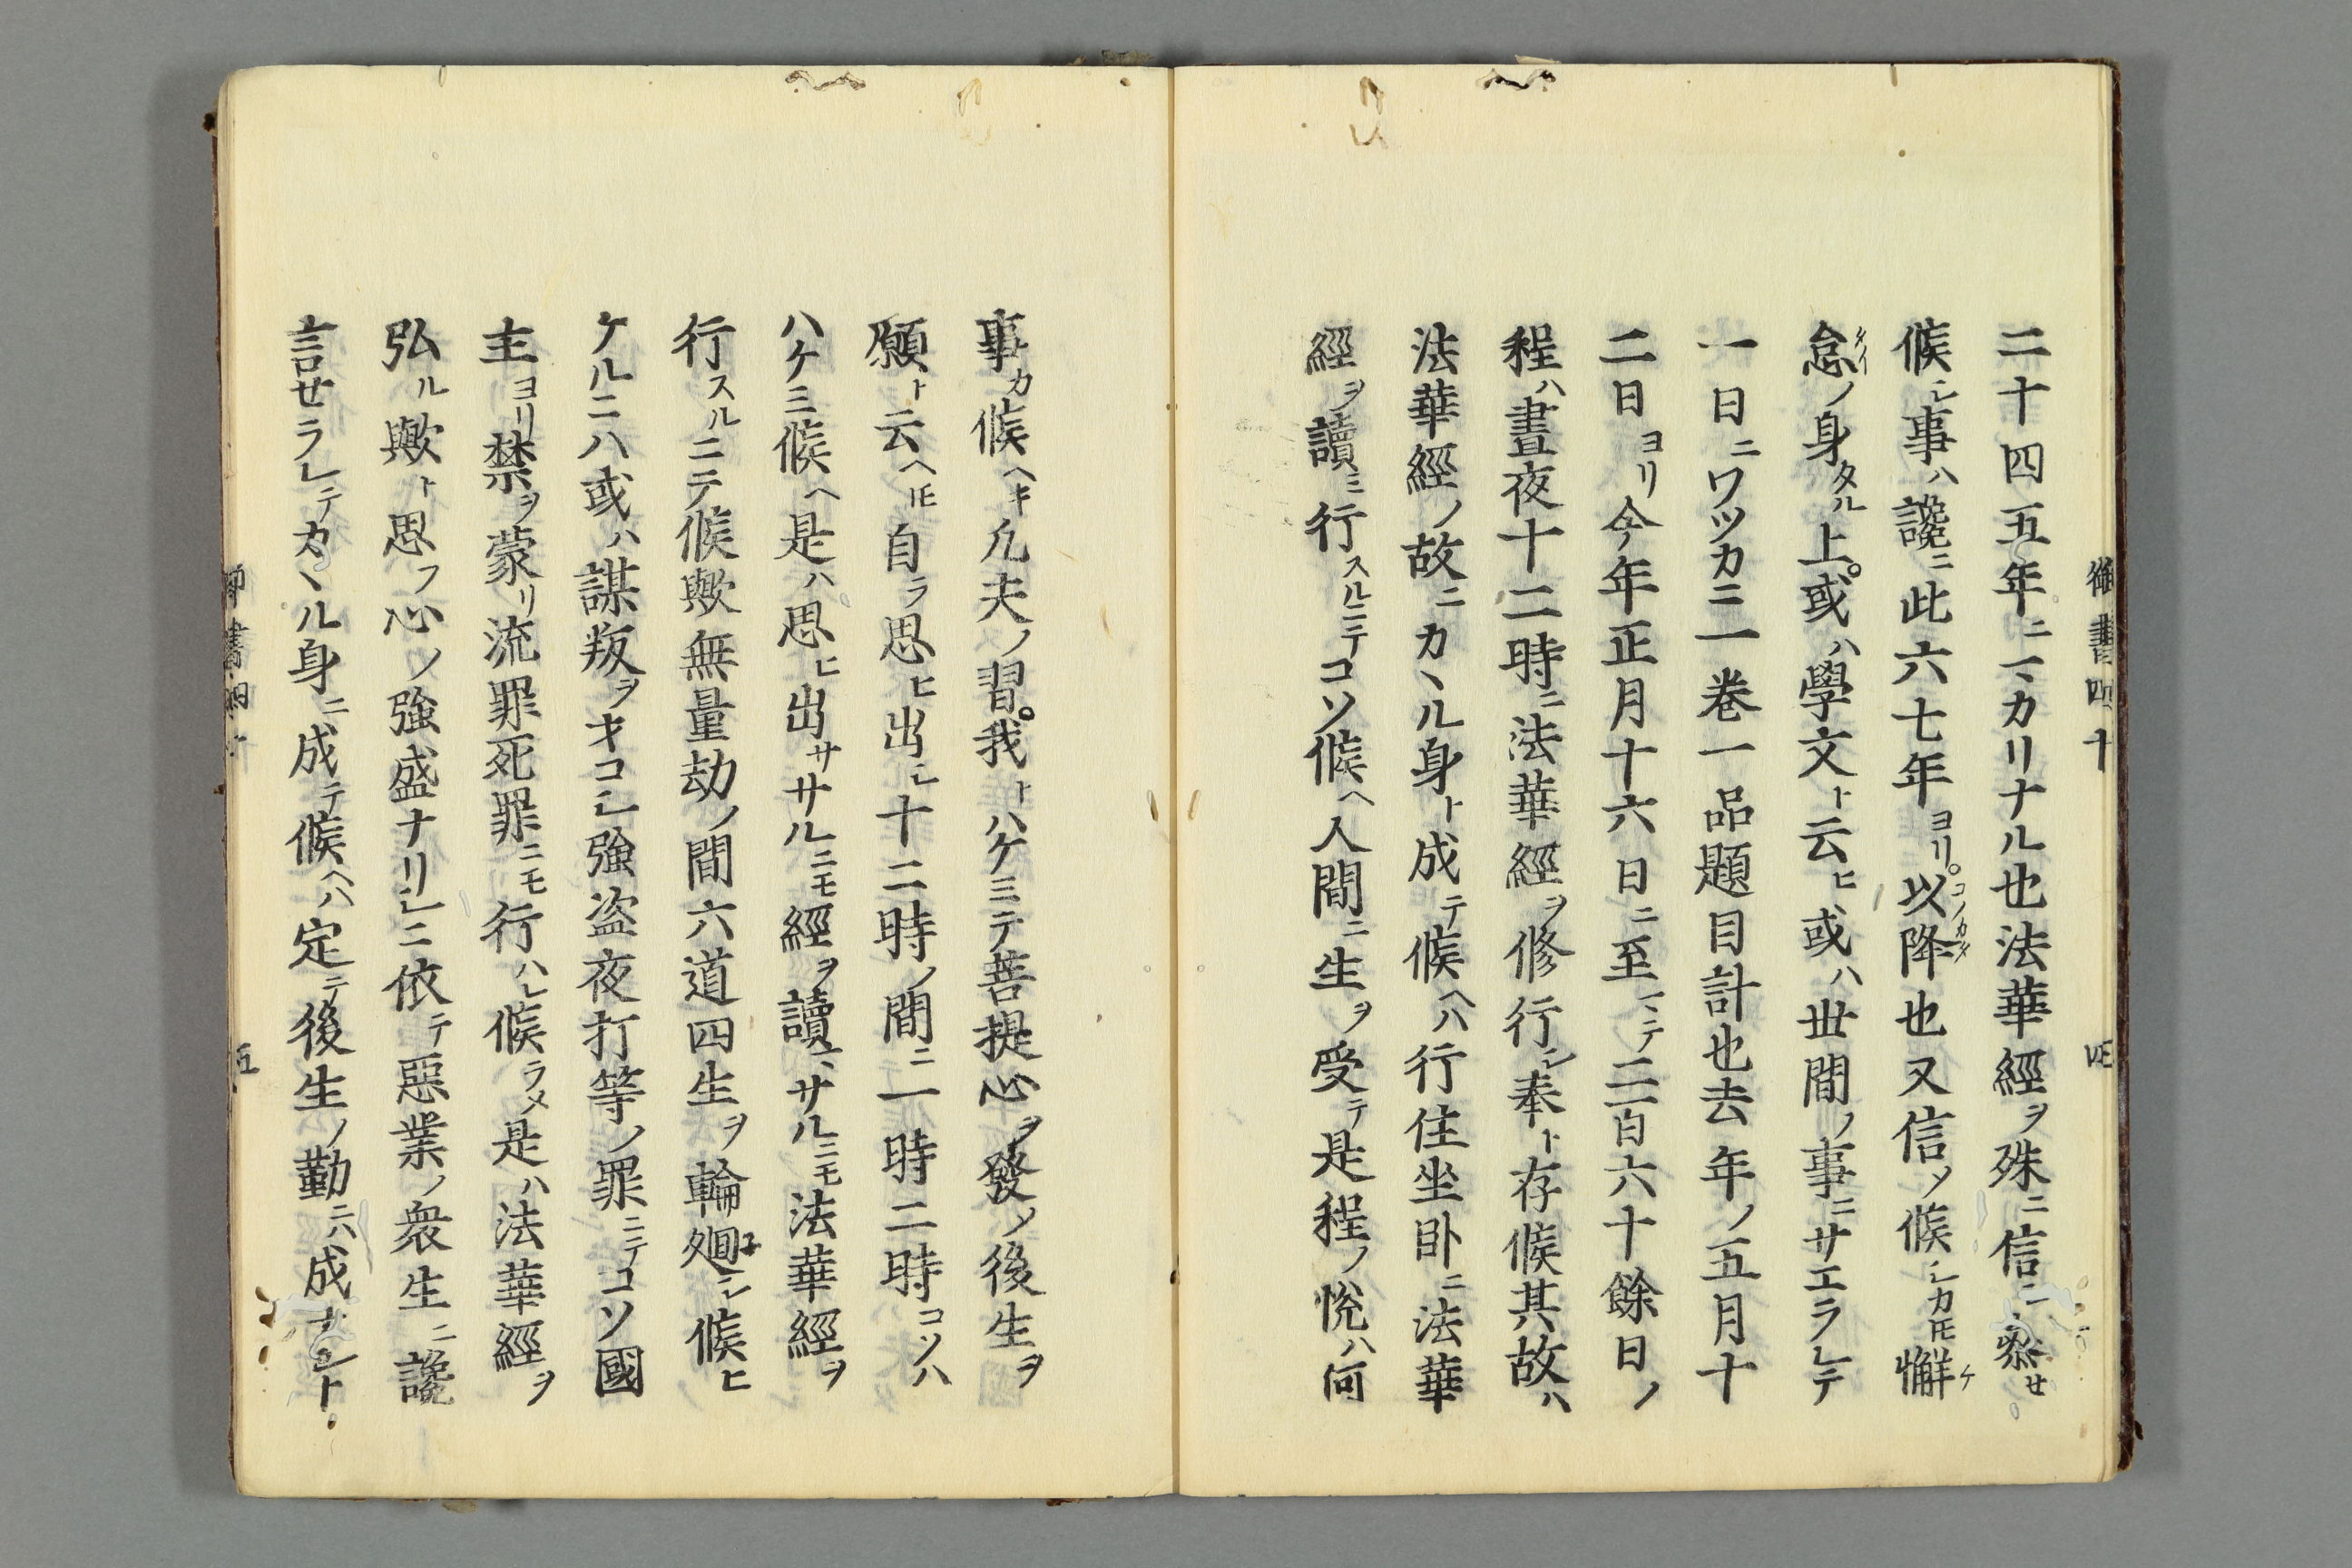 御書四十 四
二十四五年ニマカリナル也法華經ヲ殊ニ信シ參セ
候シ事ハ讒ニ此六七年ヨリ。以降コノカタ也又信シ候シカ𪜈懈ケ
怠タイノ身タル上。或ハ學文ト云ヒ或ハ世間ノ事ニサエラレテ
一日ニワツカニ一巻一品題目計也去年ノ五月十
二日ヨリ今年正月十六日ニ至マテ二百六十餘日ノ
程ハ晝夜十二時ニ法華經ヲ修行シ奉ト存候其故ハ
法華經ノ故ニカヽル身ト成テ候ヘハ行住坐卧ニ法華
經ヲ讀ミ行スルニテコソ候ヘ人間ニ生ヲ受テ是程ノ悅ハ何
事カ候ヘキ凡夫ノ習。我トハケミテ菩提心ヲ發ノ後生ヲ
願ト云ヘ𪜈自ラ思ヒ出シ十二時ノ間ニ一時二時コソハ
ハケミ候ヘ是ハ思ヒ出サヽルニモ經ヲ讀マサルニモ法華經ヲ
行スルニテ候歟無量劫ノ間六道四生ヲ輪廻シ候ヒ
ケルニハ或ハ謀叛ヲオコシ強盗夜打等ノ罪ニテコソ國
主ヨリ禁ヲ蒙リ流罪死罪ニモ行ハレ候ラメ是ハ法華經ヲ
弘ル歟ト思フ心ノ強盛ナリシニ依テ惡業ノ衆生ニ讒
言セラレテカヽル身ニ成テ候ヘハ定テ後生ノ勤ニハ成ナント
御書四十 五